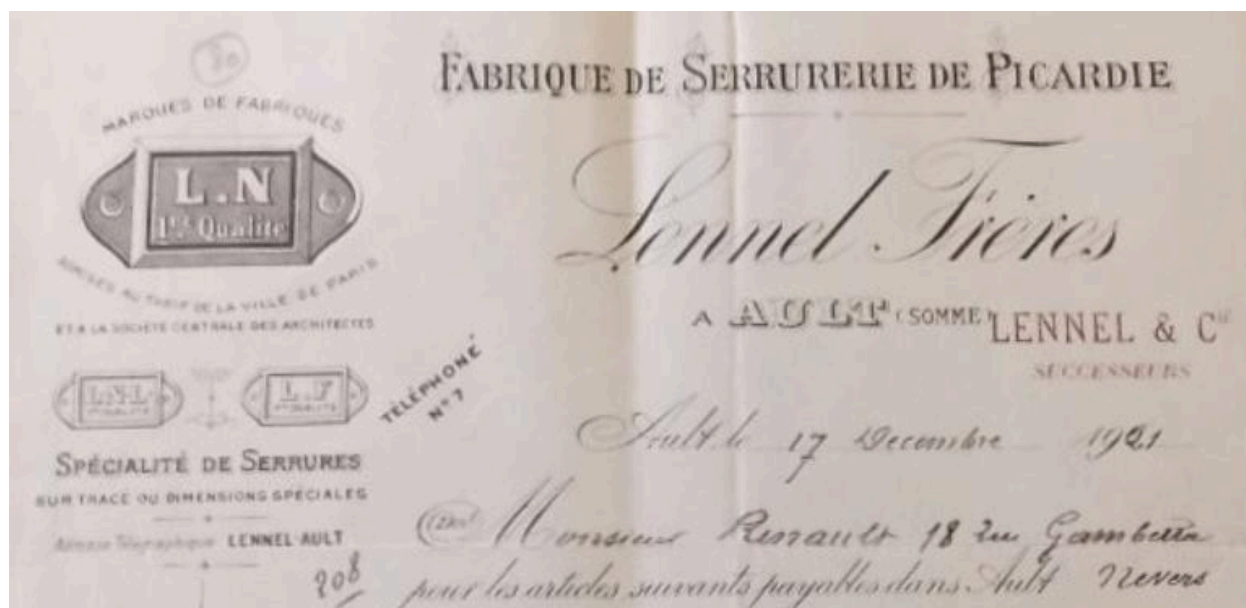 30
MARQUES DE FABRIQUES
L.N
1re Qualité
ADMISES AU TARIF DE LA VILLE DE PARIS
ET A LA SOCIÉTÉ CENTRALE DES ARCHITECTES
L.N.L.
1re QUALITÉ
L.F
1re QUALITÉ
SPÉCIALITÉ DE SERRURES
SUR TRACÉ OU DIMENSIONS SPÉCIALES
Adresse Télégraphique LENNEL-AULT
208
TÉLÉPHONE
N° 7
FABRIQUE DE SERRURERIE DE PICARDIE
Lennel Frères
A AULT (SOMME)
LENNEL & Cie
SUCCESSEURS
Ault, le 17 Décembre 1921
Doit Monsieur Renault 18 rue Gambetta
pour les articles suivants payables dans Ault Nevers